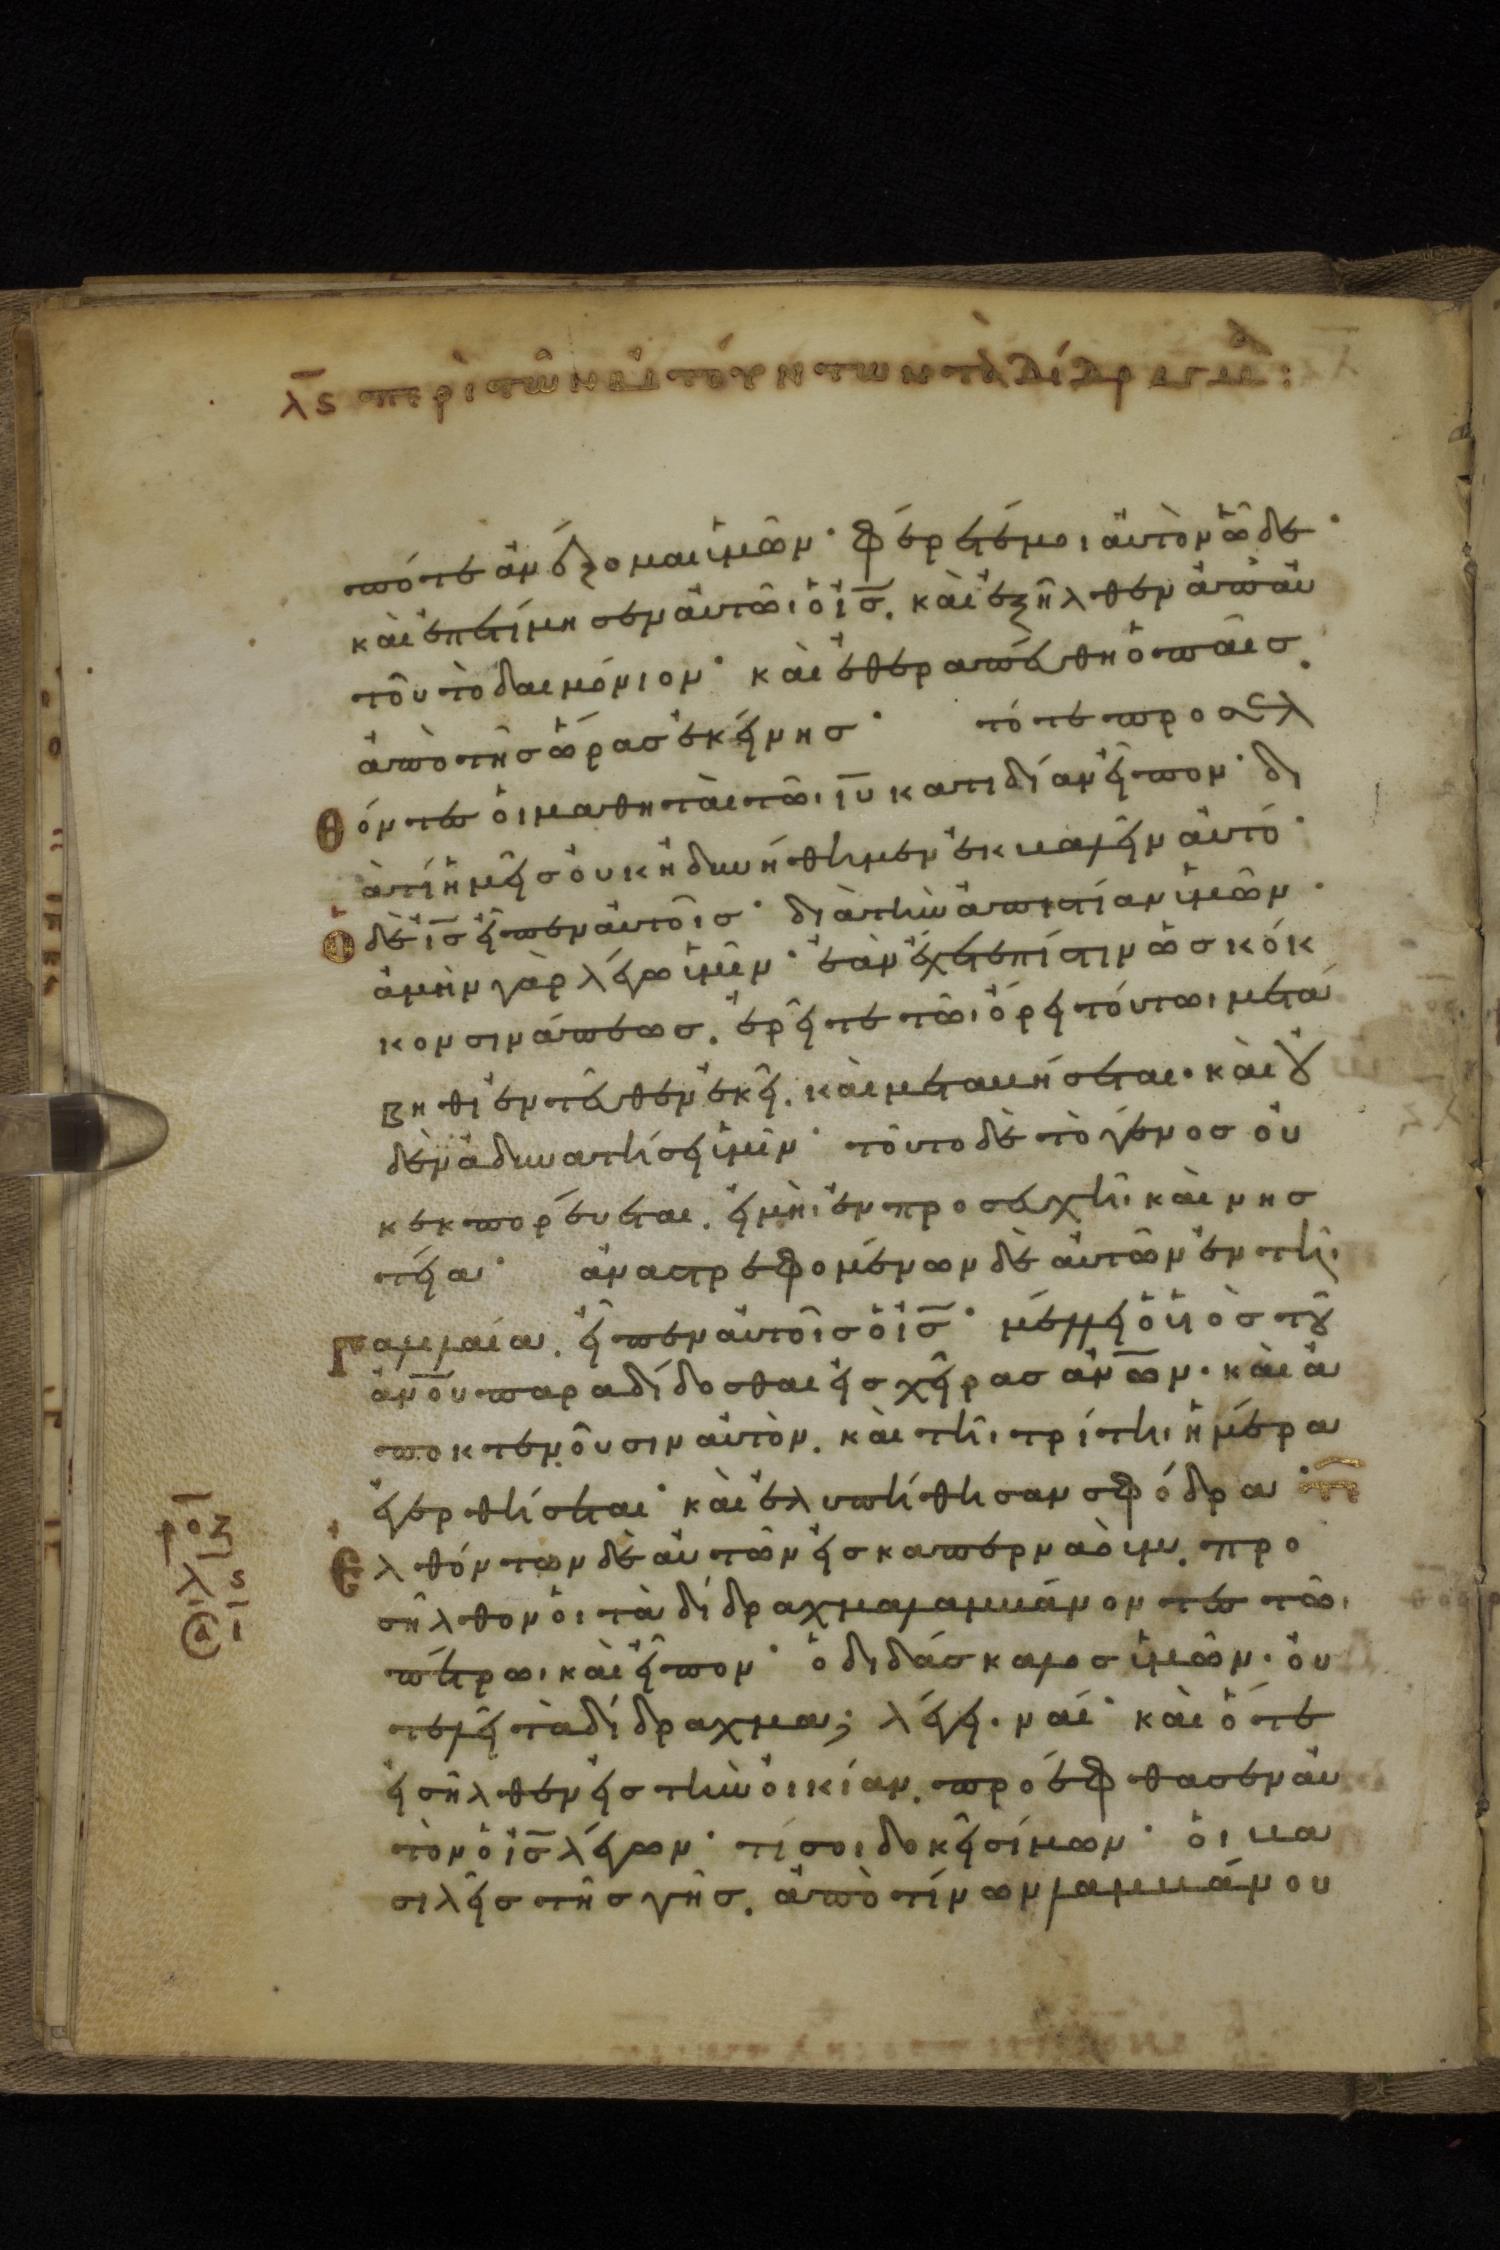 λς περὶ τῶν αἰτούντων τὰ δίδραχμα:
πότε ἀνέξομαι ὑμῶν· φέρετέ μοι αὐτὸν ὧδε·
καὶ ἐπετίμησεν αὐτῶι ὁ ις. καὶ ἐξῆλθεν ἀπ αὐ
τοῦ τὸ δαιμόνιον· καὶ ἐθεραπεύθη ὁ παῖς.
ἀπὸ τῆς ὥρας ἐκείνης· τότε προσελ
θόντες οἱ μαθηταὶ τῶι ιυ κατιδίαν εἶπον· δι
ὰ τί ἡμεῖς οὐκ ἠδυνήθημεν ἐκβαλεῖν αὐτό·
ὁ δὲ ις εἶπεν αὐτοῖς· διὰ τὴν ἀπιστίαν ὑμῶν·
ἀμὴν γὰρ λέγω ὑμῖν· ἐὰν ἔχετε πίστιν ὡς κόκ
κον σινάπεως. ἐρεῖτε τῶι ὄρει τούτωι μετά
βηθι ἐντεῦθεν ἐκεῖ. καὶ μεταβήσεται. καὶ οὐ
δὲν ἀδυνατήσει ὑμῖν· τοῦτο δὲ τὸ γένος οὐ
κ εκπορεύεται. εἰ μὴ ἐν προσευχῆι καὶ νησ
τεία· ἀναστρεφομένων δὲ αὐτῶν ἐν τῆι
γαλιλαία. εἶπεν αὐτοῖς ὁ ις· μέλλει ὁ υἱὸς τοῦ
ἀνου παραδίδοσθαι εἰς χεῖρας ἀνων. καὶ ἀ
ποκτενοῦσιν αὐτὸν. καὶ τῆι τρίτηι ἡμέρα
ἐγερθήσεται· καὶ ἐλυπήθησαν σφόδρα·
ἐλθόντων δὲ αὐτῶν εἰς καπερναοὺμ. προ
σῆλθον οἱ τὰ δίδραχμα λαμβάνοντες τῶι
πέτρωι καὶ εἶπον· ὁ διδάσκαλος ὑμῶν. οὐ
τελεῖ τὰ δίδραχμα; λέγει. ναί· καὶ ὅτε
εἰσῆλθεν εἰς τὴν οἰκίαν. προέφθασεν αὐ
τὸν ὁ ις λέγων· τί σοι δοκεῖ σίμων· οἱ βα
σιλεῖς τῆς γῆς. ἀπὸ τίνων λαμβάνου
ροζ
λς
α ι